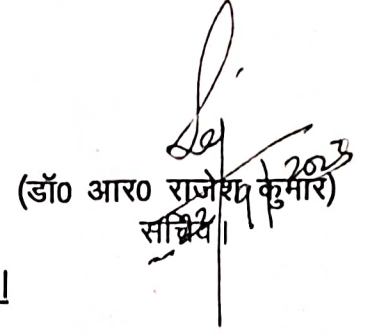 (डॉ0 आर0 राजेश कुमार)
सचिव।